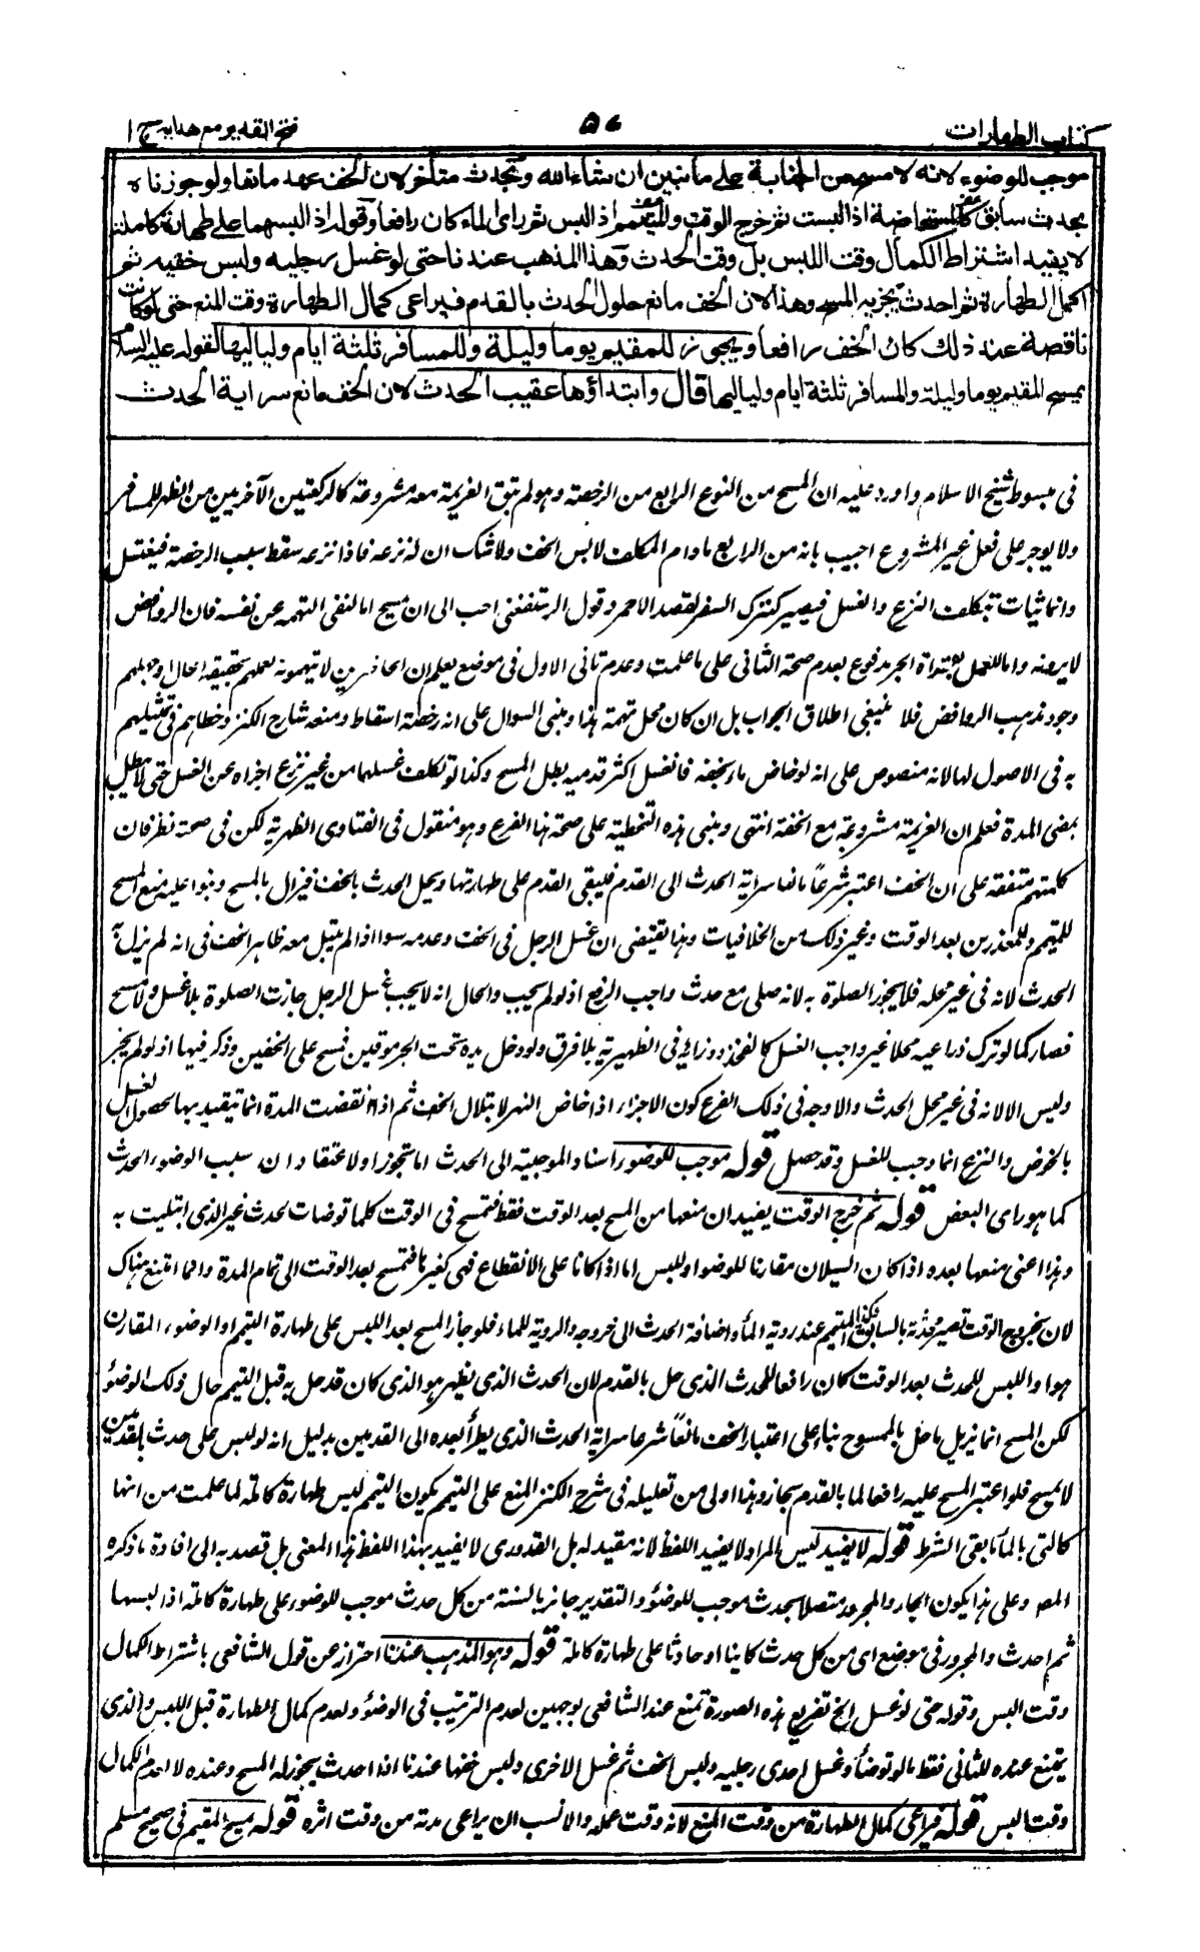 كتاب الطهارات
٥٧
فتح القدير مع هدايه ج ١
موجب للوضوء لانه لا مسح من الجنابة على ما نبين ان شاء الله وبحدث متأخر لان الخف عهد مانعا ولو جوزناه
بحدث سابق كالمستحاضة اذا لبست ثم خرج الوقت والمتيمم اذا لبس ثم راى الماء كان رافعا وقوله اذا لبسهما على طهارة كاملة
لا يفيد اشتراط الكمال وقت اللبس بل وقت الحدث وهذا المذهب عندنا حتى لو غسل رجليه ولبس خفيه ثم
اكمل الطهارة ثم احدث يجزيه المسح وهذا لان الخف مانع حلول الحدث بالقدم فيراعى كمال الطهارة وقت المنع حتى لو كانت
ناقصة عند ذلك كان الخف رافعا ويجوز للمقيم يوما وليلة وللمسافر ثلثة ايام ولياليها لقوله عليه السلام
يمسح المقيم يوما وليلة والمسافر ثلثة ايام ولياليها قال وابتداؤها عقيب الحدث لان الخف مانع سراية الحدث
فى مبسوط شيخ الاسلام واورد عليه ان المسح من النوع الرابع من الرخصة وهو لم تبق العزيمة معه مشروعة كالركعتين الآخريين من الظهر للمسافر
ولا يوجر على فعل غير المشروع اجيب بانه من الرابع ما دام المكلف لابس الخف ولا شك ان له نزعه فاذا نزعه سقط سبب الرخصة فيغتسل
وانما يثاب بتكلف النزع والغسل فيصير كترك السفر لقصد الاحمر وقول الرستغفنى احب الى ان مسح اما لنفى التهمة عن نفسه فان الروافض
لا يرونه واما للعمل بقراءة الجر مدفوع بعدم صحة الثانى على ما علمت وعدم تأتى الاول فى موضع يعلم ان الحاضرين لا يتهمونه لعلمهم بحقيقة الحال او جهلهم
وجود مذهب الروافض فلا ينبغى اطلاق الجواب بل ان كان محل تهمة هذا ومبنى السوال على انه رخصة اسقاط ومنعه شارح الكنز وخطاهم فى تمثيلهم
به فى الاصول لها لانه منصوص على انه لو خاض ماء بخفه فانغسل اكثر قدميه يبطل المسح وكذا لو تكلف غسلهما من غير نزع اجزاه عن الغسل حتى لا يبطل
بمضى المدة فعلم ان العزيمة مشروعة مع الخفة انتهى ومبنى هذه التخطية على صحة هذا الفرع وهو منقول فى الفتاوى الظهرية لكن فى صحته نظر فان
كلمتهم متفقة على ان الخف اعتبر شرعا مانعا سراية الحدث الى القدم فيبقى القدم على طهارتها ويحل الحدث بالخف فيزال بالمسح وبنوا عليه منع المسح
للمتيمم وللمعذورين بعد الوقت وغير ذلك من الخلافيات وهذا يقتضى ان غسل الرجل فى الخف وعدمه سواء اذا لم يبتل معه ظاهر الخف فى انه لم يزل به
الحدث لانه فى غير محله فلا يجوز الصلوة به لانه صلى مع حدث واجب الرفع اذ لو لم يجب والحال انه لا يجب غسل الرجل جازت الصلوة بلا غسل ولا مسح
فصار كما لو ترك ذراعيه وغسل محلا غير واجب الغسل كالفخذ ووزانه فى الظهيرية بلا فرق ولو ادخل يده تحت الجرموقين فمسح على الخفين وذكر فيها انه لم يجز
وليس الا لانه فى غير محل الحدث والاوجه فى ذلك الفرع كون الاجزاء اذا خاض النهر لابتلال الخف ثم اذا انقضت المدة انما يتقيد بها لحصول الغسل
بالخوض والنزع انما وجب للغسل وقد حصل قوله موجب للوضوء اسناد الموجبية الى الحدث اما تتجوزا ولا عتقاد ان سبب الوضوء الحدث
كما هو راى البعض قوله ثم خرج الوقت يفيد ان منعها من المسح بعد الوقت فقط فتمسح فى الوقت كلما توضات لحدث غير الذى ابتليت به
وهذا اعنى منعها بعده اذا كان السيلان مقارنا للوضوء او للبس اما اذا كانا على الانقطاع فهى كغيرها فتمسح بعد الوقت الى تمام المدة وانما امتنع هناك
لان بخروج الوقت تصير محدثة بالسابق وكذا المتيمم عند روية الماء واضافة الحدث الى خروجه والروية للماء فلو جاز المسح بعد اللبس على طهارة التيمم او الوضوء المقارن
هو او اللبس للحدث بعد الوقت كان رافعا للحدث الذى حل بالقدم لان الحدث الذى يظهر هو الذى كان قد حل به قبل التيمم حال ذلك الوضوء
لكن المسح انما يزيل ما حل بالممسوح بناء على اعتبار الخف مانعا شرعا سراية الحدث الذى يطرأ بعده الى القدمين بدليل انه لو لبس على حدث بالقدمين
لا يمسح فلو اعتبر المسح عليه رافعا لما بالقدم لجاز وهذا اولى من تعليله فى شرح الكنز المنع على المتيمم بكون التيمم ليس طهارة كاملة لما علمت من انها
كالتى بالماء ما بقى الشرط قوله لا يفيد ليس المراد لا يفيد اللفظ لانه مقيد له بل القدورى لا يفيد بهذا اللفظ هذا المعنى بل قصد به الى افادة ما ذكره
المصـ وعلى هذا يكون الجار والمجرور متصلا بحدث موجب للوضوء والتقدير جائز بالسنة من كل حدث موجب للوضوء على طهارة كاملة اذا لبسها
ثم احدث والمجرور فى موضع اى من كل حدث كاينا او حادثا على طهارة كاملة قوله وهو المذهب عندنا احتراز عن قول الشافعى باشتراط الكمال
وقت اللبس وقوله حتى لو غسل الخ تفريع هذه الصورة تمنع عند الشافعى بوجهين لعدم الترتيب فى الوضوء ولعدم كمال الطهارة قبل اللبس والذى
يمتنع عنده للثانى فقط ما لو توضأ وغسل احدى رجليه ولبس الخف ثم غسل الاخرى ولبس خفها عندنا اذا احدث يجوز له المسح وعنده لا لعدم الكمال
وقت اللبس قوله فيراعى كمال الطهارة من وقت المنع لانه وقت عمله والانسب ان يراعى مدته من وقت اثره قوله يمسح المقيم فى صحيح مسلم